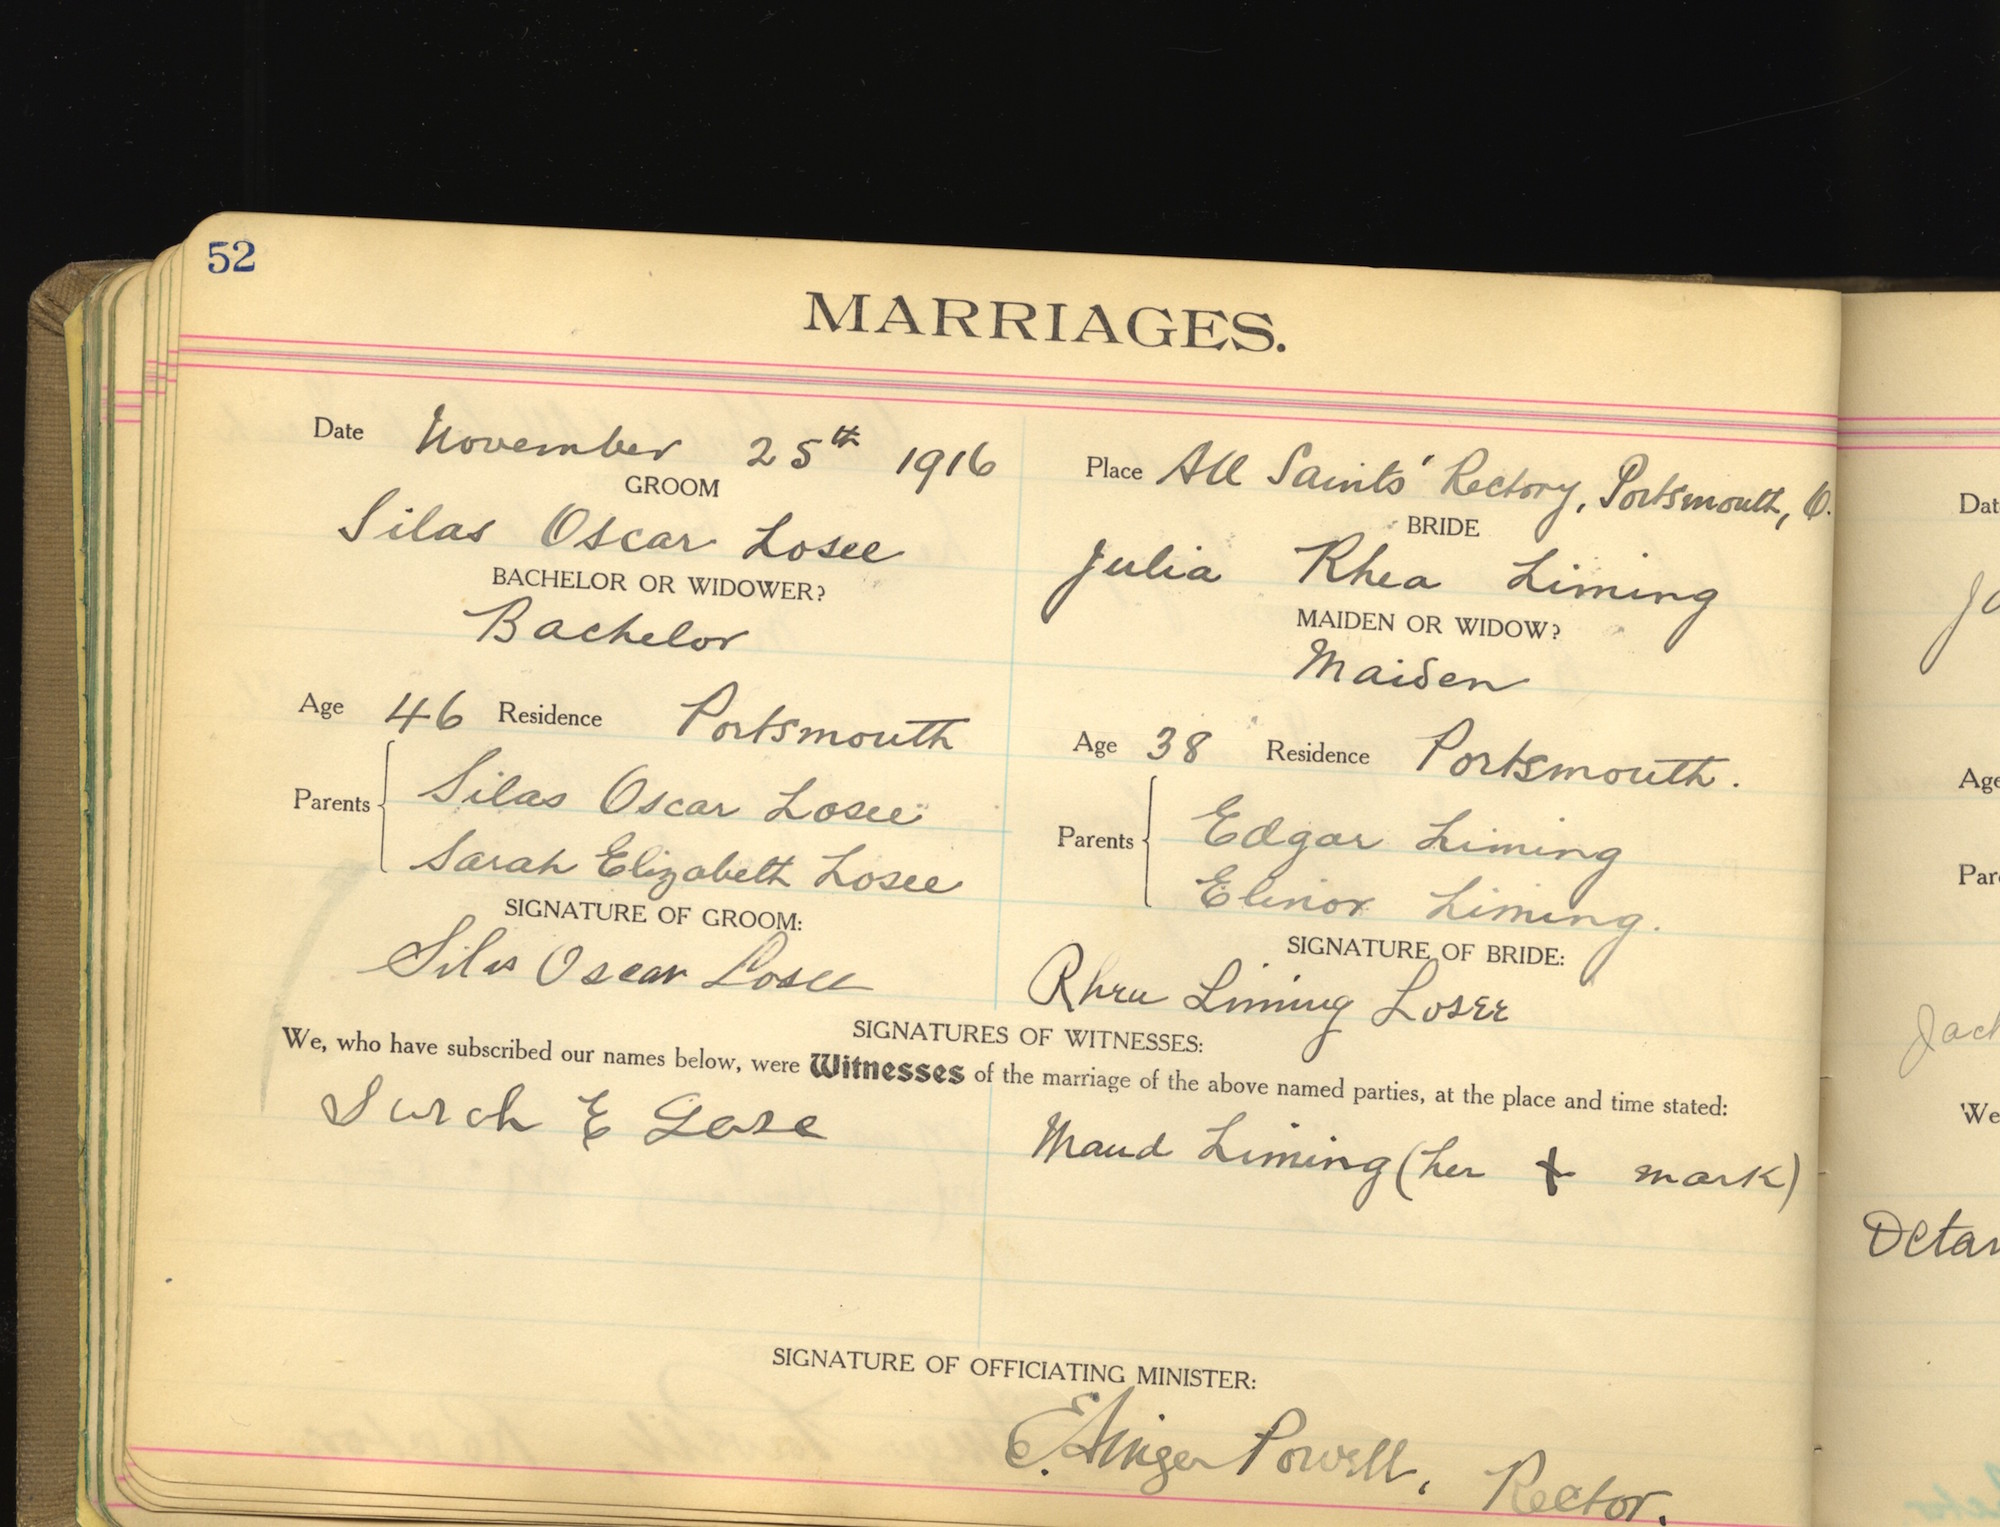 52
MARRIAGES.
Date November 25th 1916
GROOM
Silas Oscar Losee
BACHELOR OR WIDOWER?
Bachelor
Age 46 Residence Portsmouth
Parents { Silas Oscar Losee
Sarah Elizabeth Losee
SIGNATURE OF GROOM:
Silas Oscar Losee
Place All Saints' Rectory, Portsmouth, O.
BRIDE
Julia Rhea Liming
MAIDEN OR WIDOW?
Maiden
Age 38 Residence Portsmouth.
Parents { Edgar Liming
Elinor Liming.
SIGNATURE OF BRIDE:
Rhea Liming Losee
SIGNATURES OF WITNESSES:
We, who have subscribed our names below, were Witnesses of the marriage of the above named parties, at the place and time stated:
E
Maud Liming (her + mark)
SIGNATURE OF OFFICIATING MINISTER:
E. Ainger Powell, Rector.
Dat
Ja
Age
Par
Jack
We